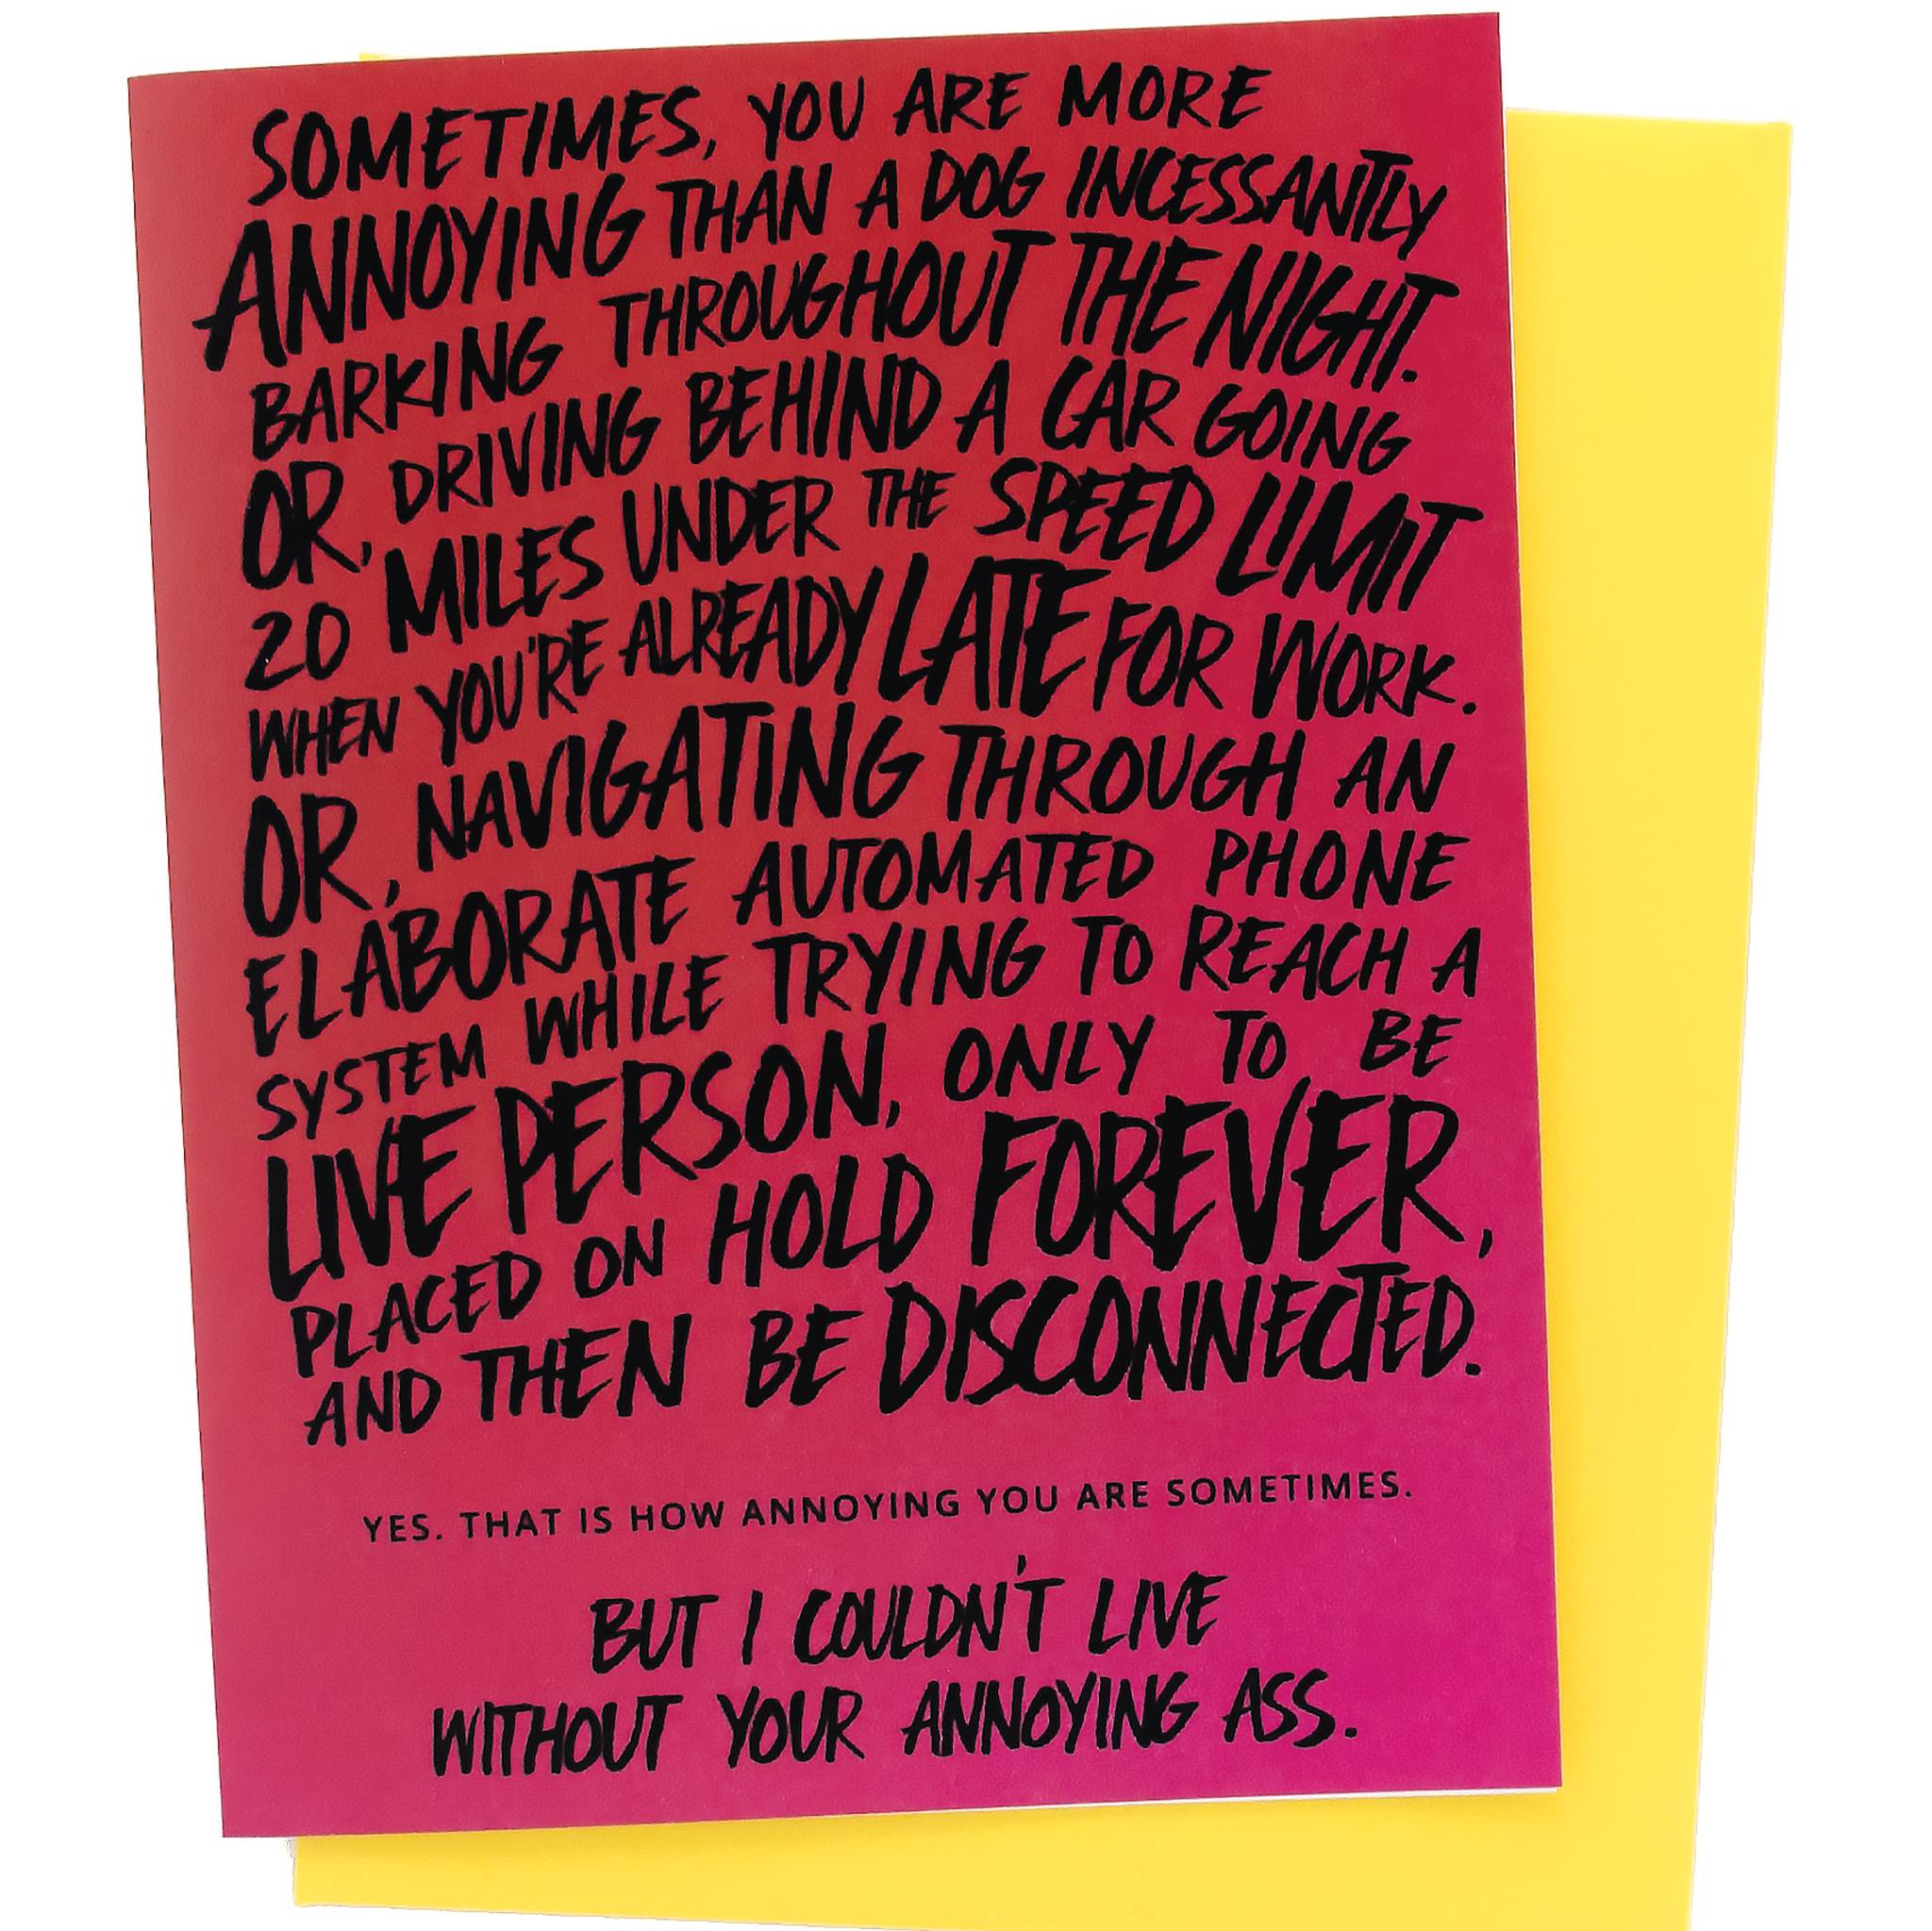 SOMETIMES, YOU ARE MORE
ANNOYING THAN A DOG INCESSANTLY
BARKING THROUGHOUT THE NIGHT.
OR, DRIVING BEHIND A CAR GOING
20 MILES UNDER THE SPEED LIMIT
WHEN YOU'RE ALREADY LATE FOR WORK.
OR, NAVIGATING THROUGH AN
ELABORATE AUTOMATED PHONE
SYSTEM WHILE TRYING TO REACH A
LIVE PERSON, ONLY TO BE
PLACED ON HOLD FOREVER,
AND THEN BE DISCONNECTED.
YES. THAT IS HOW ANNOYING YOU ARE SOMETIMES.
BUT I COULDN'T LIVE
WITHOUT YOUR ANNOYING ASS.